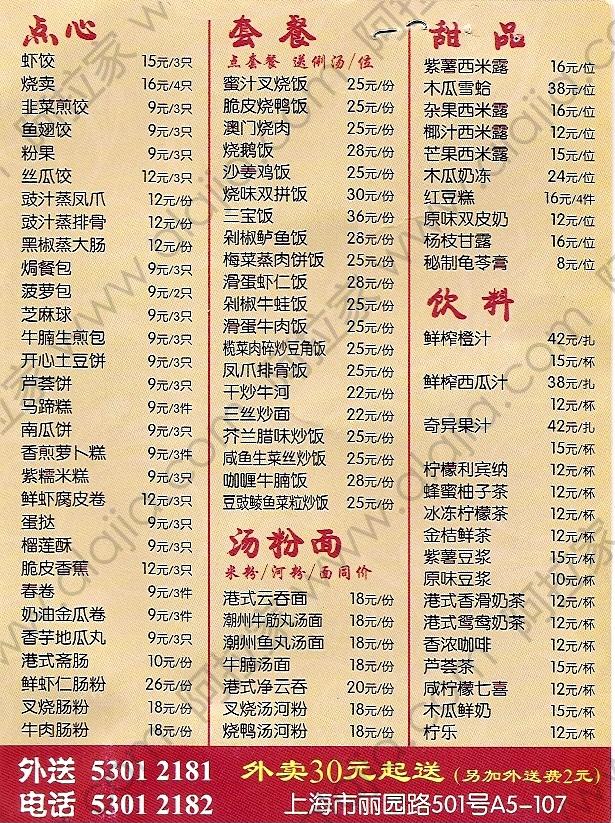 点心
虾饺 15元/3只
烧卖 16元/4只
韭菜煎饺 9元/3只
鱼翅饺 9元/3只
粉果 9元/3只
丝瓜饺 12元/3只
豉汁蒸凤爪 12元/份
豉汁蒸排骨 12元/份
黑椒蒸大肠 12元/份
焗餐包 9元/3只
菠萝包 9元/2只
芝麻球 9元/3只
牛腩生煎包 9元/3只
开心土豆饼 9元/3只
芦荟饼 9元/3只
马蹄糕 9元/3件
南瓜饼 9元/3只
香煎萝卜糕 9元/3件
紫糯米糕 9元/3只
鲜虾腐皮卷 12元/3只
蛋挞 9元/3只
榴莲酥 9元/3只
脆皮香蕉 12元/3只
春卷 9元/3件
奶油金瓜卷 9元/3件
香芋地瓜丸 9元/3只
港式斋肠 10元/份
鲜虾仁肠粉 26元/份
叉烧肠粉 18元/份
牛肉肠粉 18元/份
套餐
点套餐 送例汤/位
蜜汁叉烧饭 25元/份
脆皮烧鸭饭 25元/份
澳门烧肉 25元/份
烧鹅饭 28元/份
沙姜鸡饭 25元/份
烧味双拼饭 30元/份
三宝饭 36元/份
剁椒鲈鱼饭 28元/份
梅菜蒸肉饼饭 25元/份
滑蛋虾仁饭 28元/份
剁椒牛蛙饭 25元/份
滑蛋牛肉饭 25元/份
榄菜肉碎炒豆角饭 25元/份
凤爪排骨饭 25元/份
干炒牛河 22元/份
三丝炒面 22元/份
芥兰腊味炒饭 25元/份
咸鱼生菜丝炒饭 25元/份
咖喱牛腩饭 28元/份
豆豉鲮鱼菜粒炒饭 25元/份
汤粉面
米粉/河粉/面同价
港式云吞面 18元/份
潮州牛筋丸汤面 18元/份
潮州鱼丸汤面 18元/份
牛腩汤面 18元/份
港式净云吞 20元/份
叉烧汤河粉 18元/份
烧鸭汤河粉 18元/份
甜品
紫薯西米露 16元/位
木瓜雪蛤 38元/位
杂果西米露 16元/位
椰汁西米露 12元/位
芒果西米露 15元/位
木瓜奶冻 24元/位
红豆糕 16元/4件
原味双皮奶 12元/位
杨枝甘露 16元/位
秘制龟苓膏 8元/位
饮料
鲜榨橙汁 42元/扎
15元/杯
鲜榨西瓜汁 38元/扎
12元/杯
奇异果汁 42元/扎
15元/杯
柠檬利宾纳 12元/杯
蜂蜜柚子茶 12元/杯
冰冻柠檬茶 12元/杯
金桔鲜茶 12元/杯
紫薯豆浆 15元/杯
原味豆浆 10元/杯
港式香滑奶茶 12元/杯
港式鸳鸯奶茶 12元/杯
香浓咖啡 12元/杯
芦荟茶 15元/杯
咸柠檬七喜 12元/杯
木瓜鲜奶 15元/杯
柠乐 12元/杯
外送 5301 2181 外卖30元起送(另加外送费2元)
电话 5301 2182 上海市丽园路501号A5-107
阿拉家 www.alajia.com